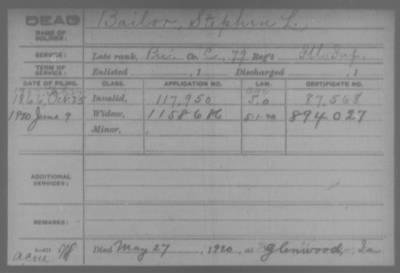 DEAD
NAME OF SOLDIER: Bailor, Stephen L.
SERVICE: Late rank, Pri. Co. C, 79 Reg't Ill. Inf.
TERM OF SERVICE: Enlisted , 1 Discharged , 1
DATE OF FILING. CLASS. APPLICATION NO. LAW. CERTIFICATE NO.
1866 Oct Invalid, 117,950 87,568
1920 June 9 Widow, 1158686 894027
Minor,
ADDITIONAL SERVICES:
REMARKS:
Died May 27, 1920, at Glenwood, Ia